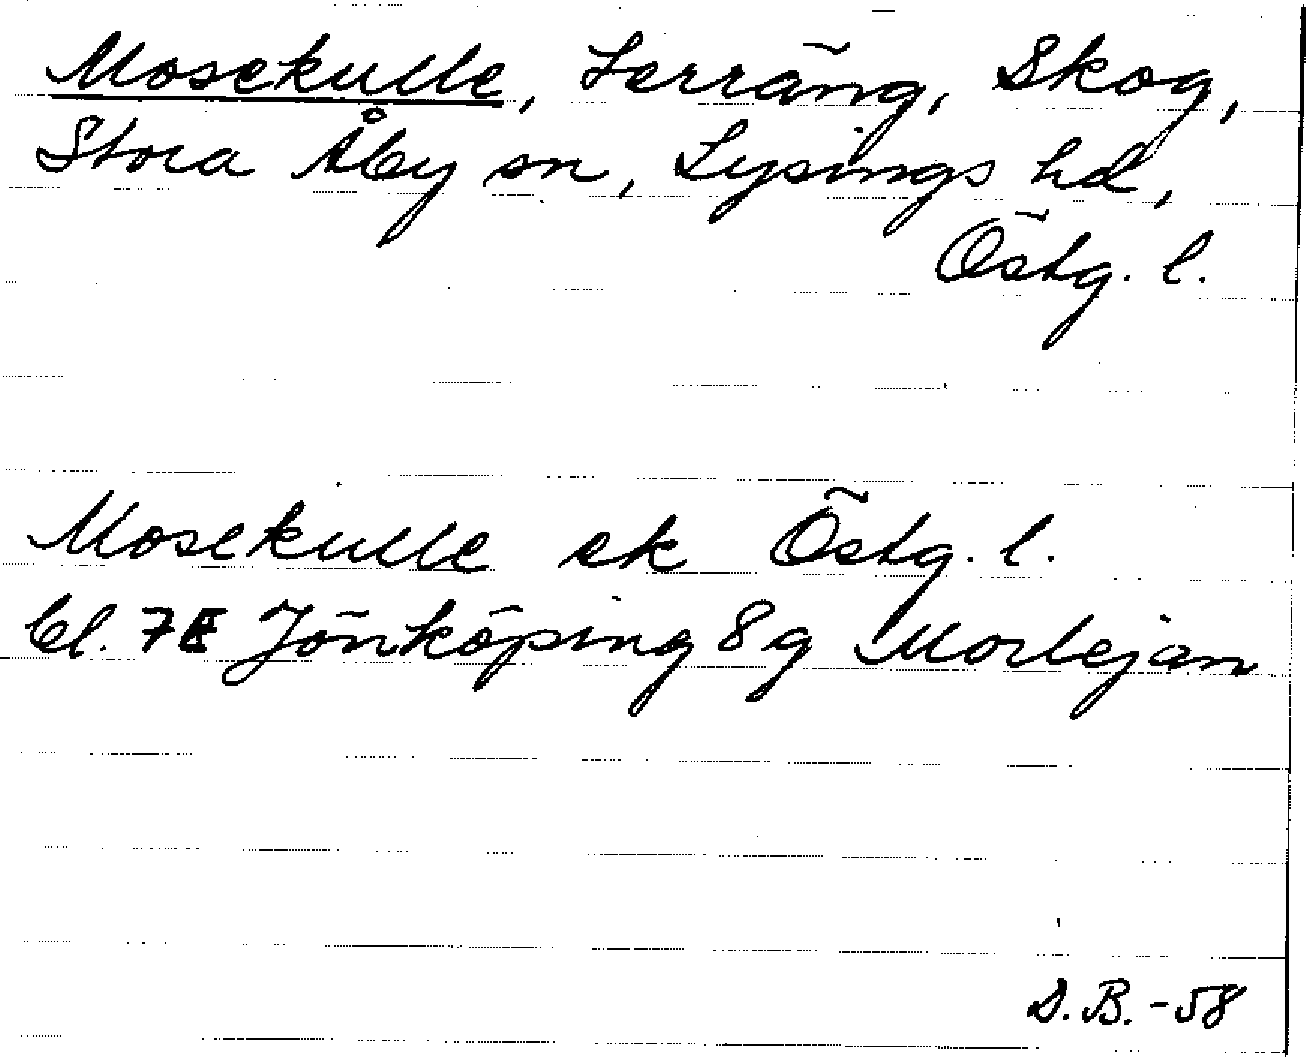 Mosekulle, Terräng, Skog,
Stora Åby sn, Lysings hd,
Östg. l.
Mosekulle ek Östg. l.
bl. 7E Jönköping 8g Morlejan
D.B. -58